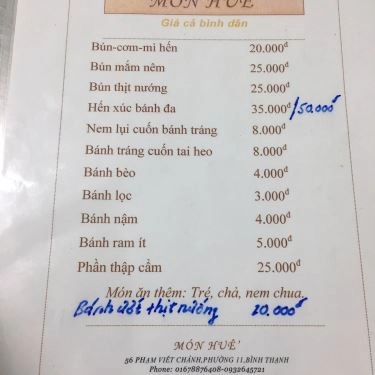 MÓN HUẾ
Giá cả bình dân
Bún-cơm-mì hến 20.000đ
Bún mắm nêm 25.000đ
Bún thịt nướng 25.000đ
Hến xúc bánh đa 35.000đ/50.000đ
Nem lụi cuốn bánh tráng 8.000đ
Bánh tráng cuốn tai heo 8.000đ
Bánh bèo 4.000đ
Bánh lọc 3.000đ
Bánh nậm 4.000đ
Bánh ram ít 5.000đ
Phần thập cẩm 25.000đ
Món ăn thêm: Tré, chả, nem chua.
Bánh ướt thịt nướng 20.000đ
MÓN HUẾ
56 PHẠM VIẾT CHÁNH,PHƯỜNG 11,BÌNH THẠNH
Phone: 01678876408-0932645721